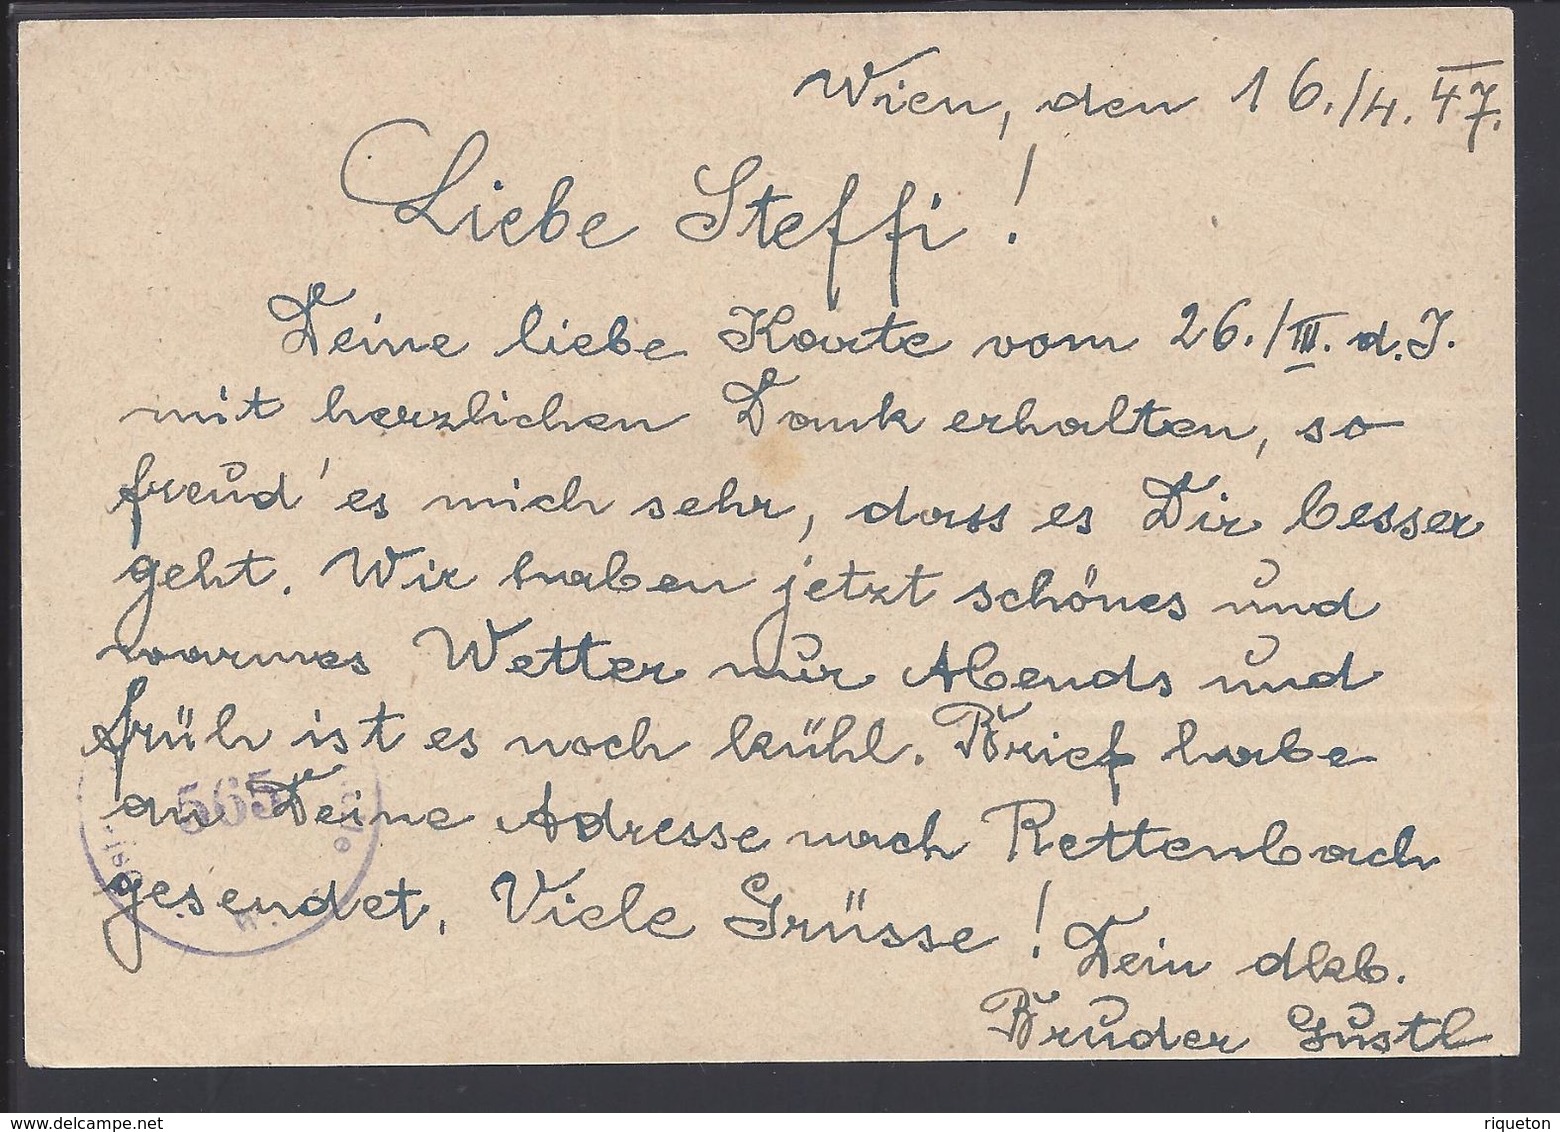 Wien, den 16./4. 47.
Liebe Steffi!
Deine liebe Karte vom 26./III. d. J.
mit herzlichen Dank erhalten, so
freud' es mich sehr, dass es Dir besser
geht. Wir haben jetzt schönes und
warmes Wetter nur Abends und
früh ist es noch kühl. Brief habe
an Deine Adresse nach Rettenbach
gesendet. Viele Grüsse! Dein dkb.
Bruder Gustl
565
www.delcampe.net
riqueton